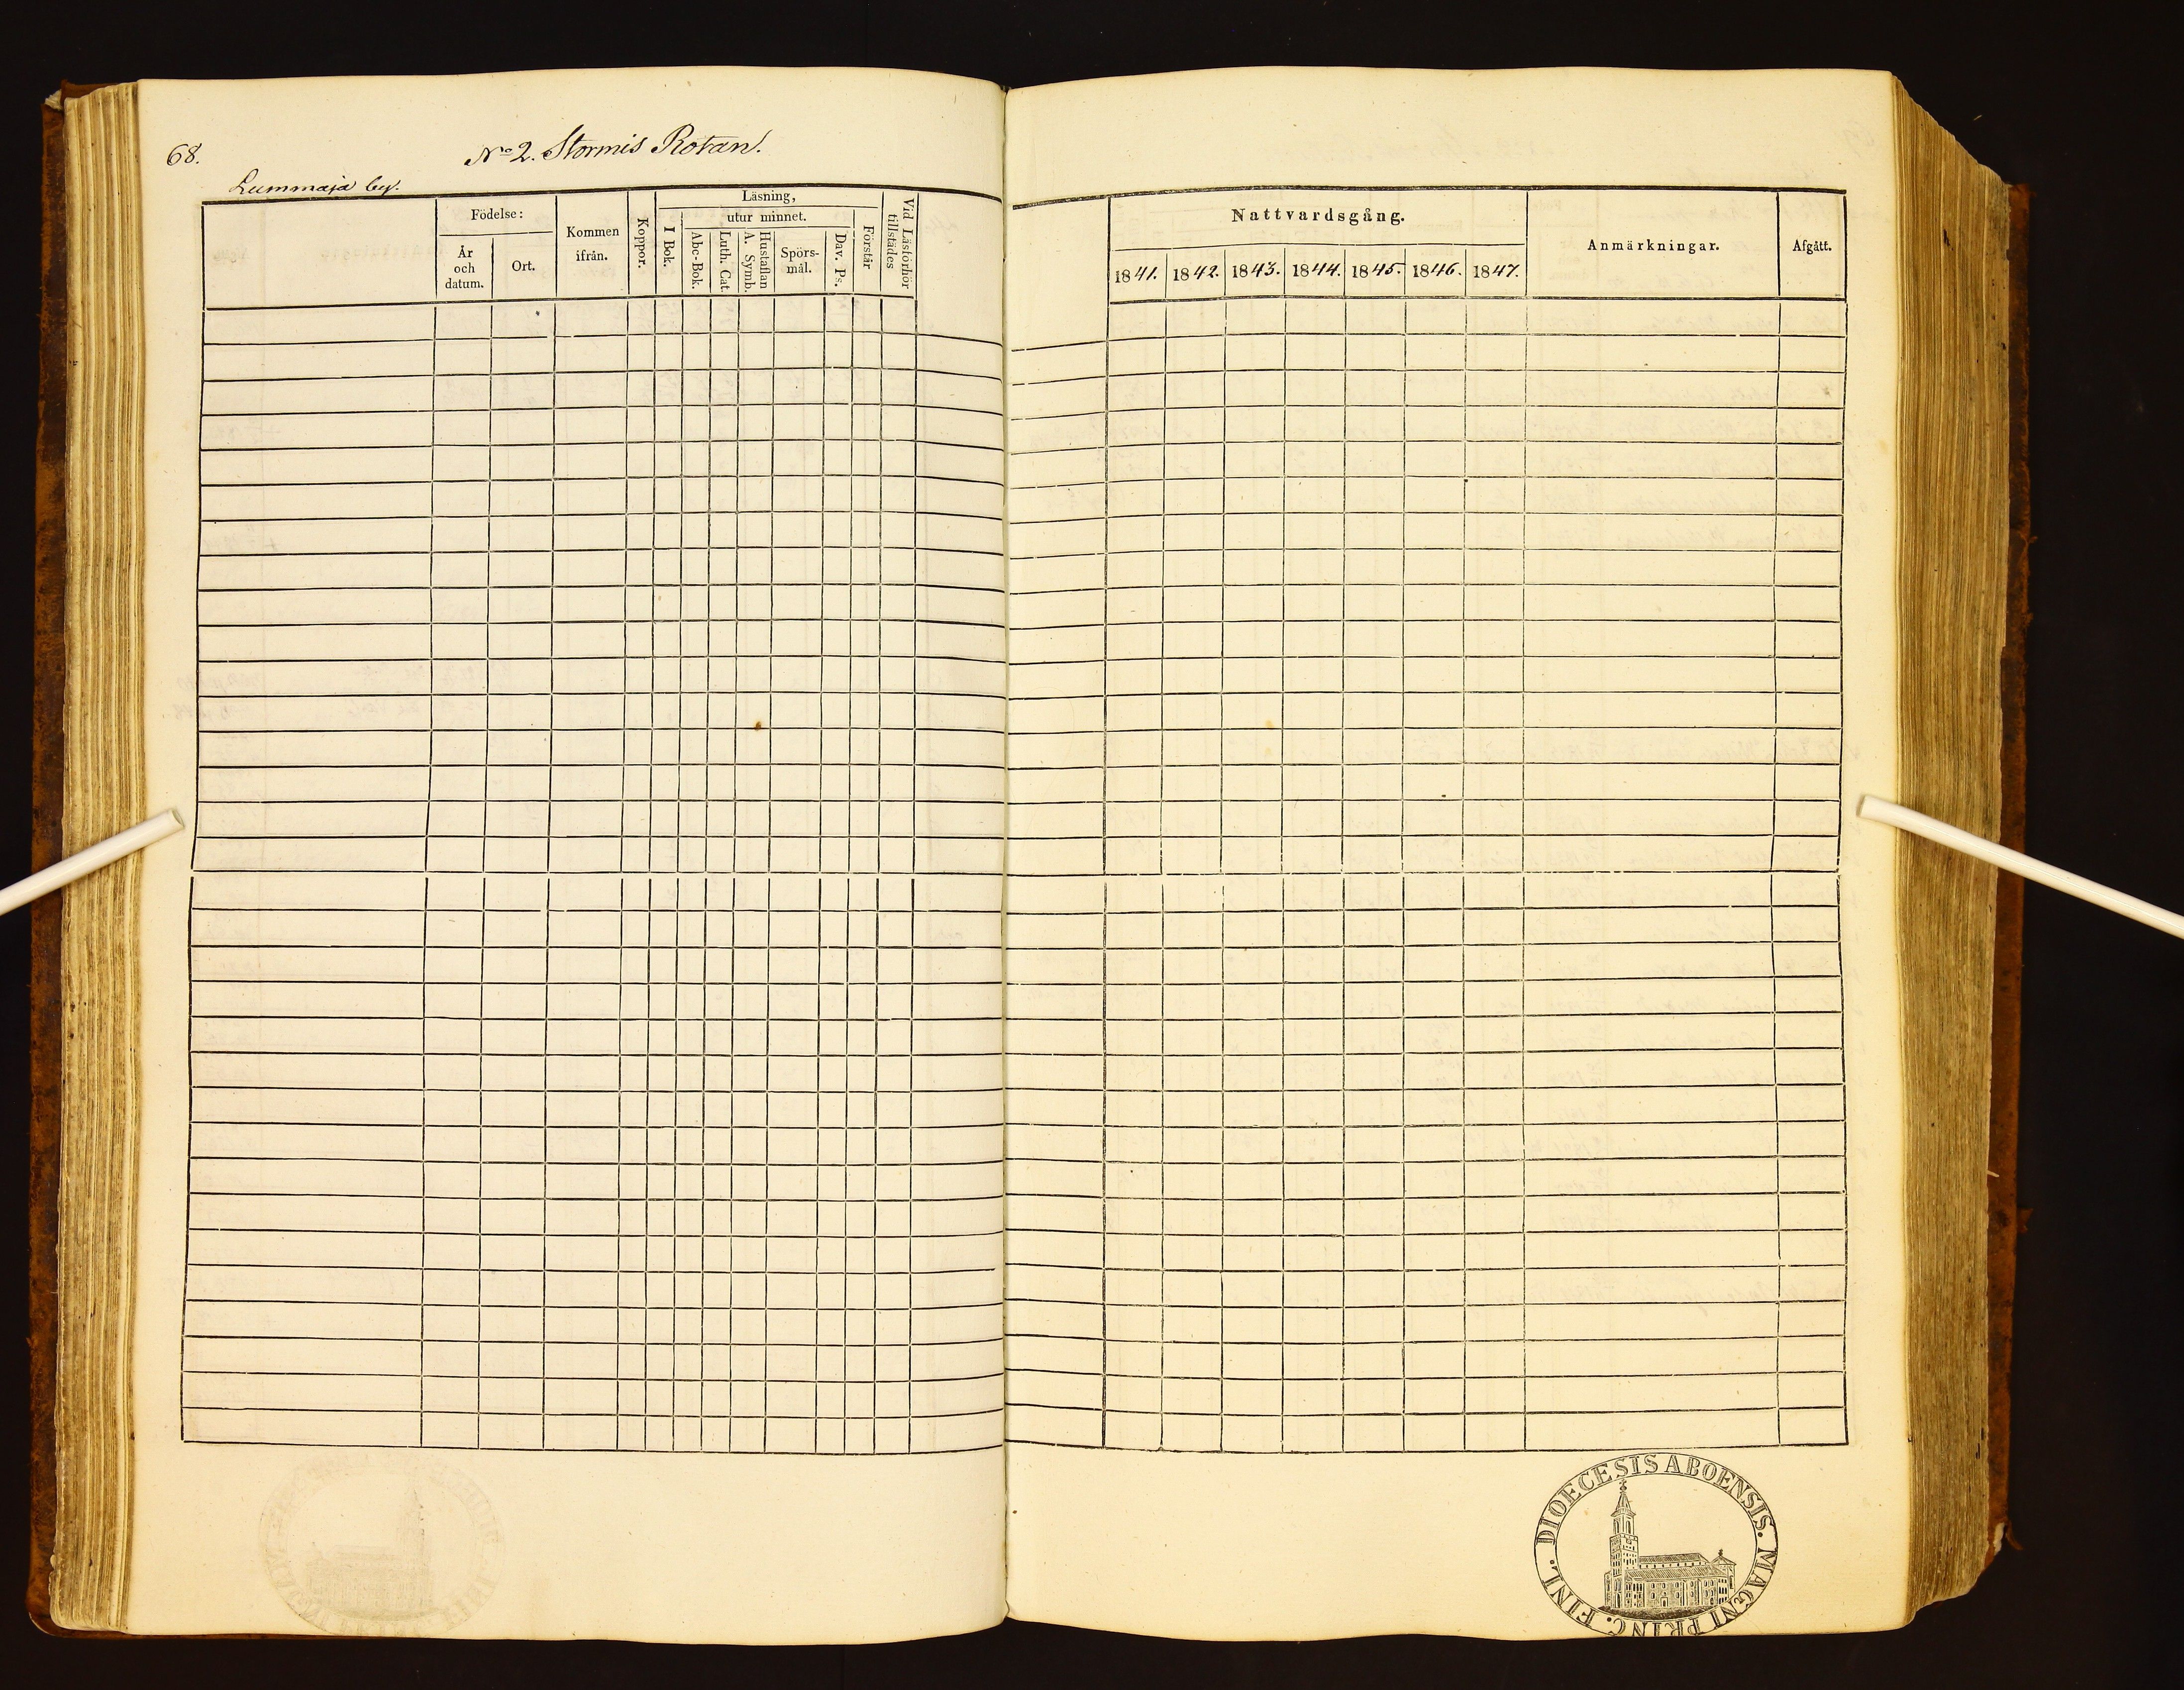 68.
No 2. Stormis Rotan.
Lummaja by.
Födelse:
År och datum.
Ort.
Kommen ifrån.
Koppor.
Läsning,
I Bok.
utur minnet.
Abc-Bok.
Luth. Cat.
Hustaflan A. Symb.
Spörs-mål.
Dav. Ps.
Förstår
Vid Läsförhör tillstädes
Nattvardsgång.
1841. 1842. 1843. 1844. 1845. 1846. 1847.
Anmärkningar.
Afgått.
DIOECESIS ABOENSIS. MAGNI PRINC. FINL.